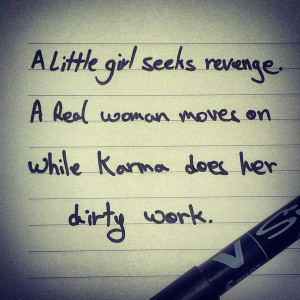 A Little girl seeks revenge.
A Real woman moves on
while Karma does her
dirty work.